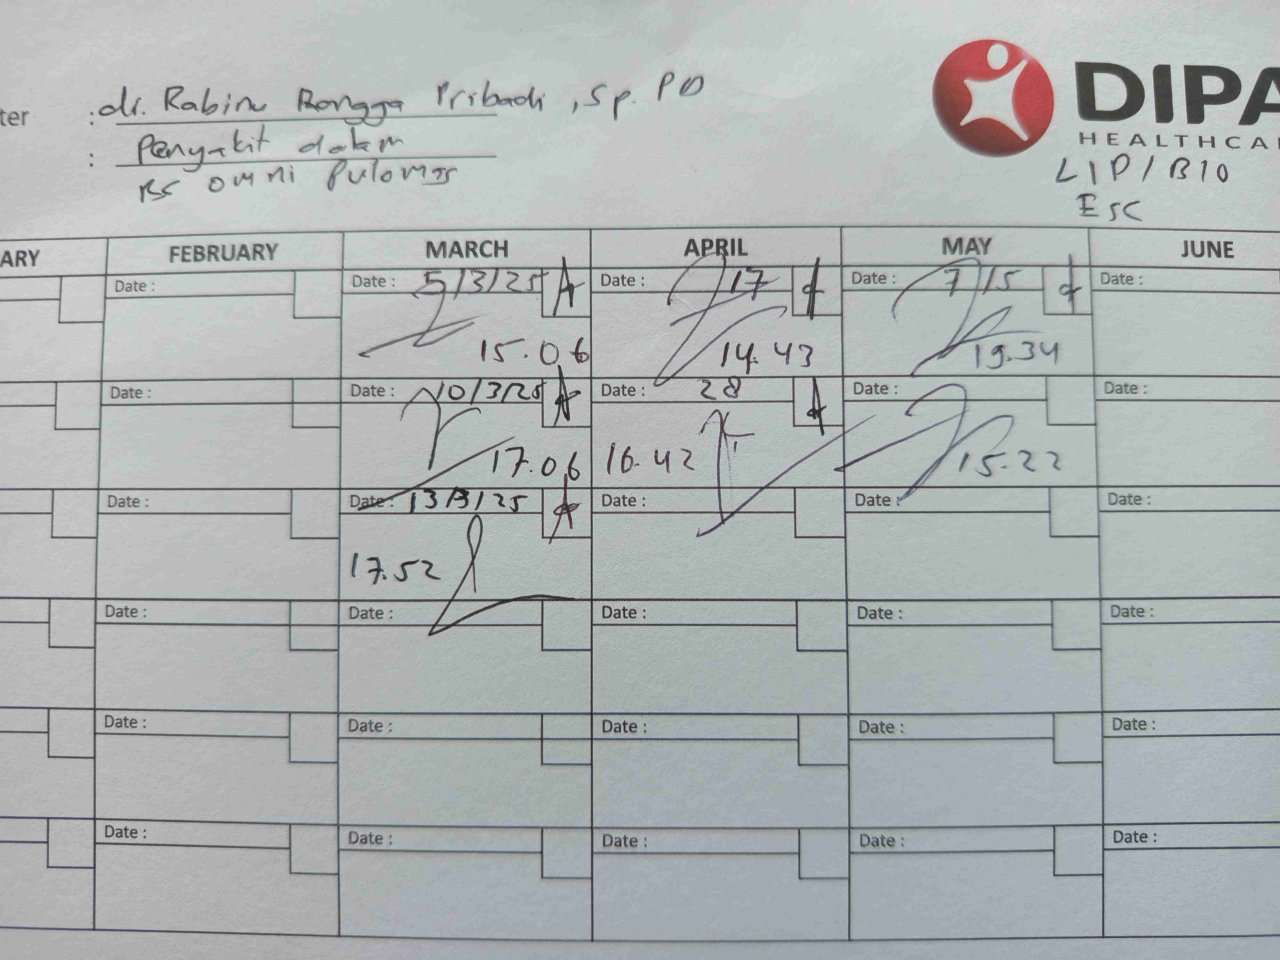 ter : dr. Rabinu Rangga Pribadi, Sp. PD
: Penyakit dalam
RS omni Pulomas
DIPA
HEALTHCA
LIP/B10
ESC
ARY FEBRUARY MARCH APRIL MAY JUNE
Date : Date : 5/3/25 Date : 17 Date : 7/5 Date :
15.06 14.43 19.34
Date : Date : 10/3/25 Date : 28 Date : Date :
17.06 16.42 15.22
Date : Date : 13/3/25 Date : Date : Date :
17.52
Date : Date : Date : Date : Date :
Date : Date : Date : Date : Date :
Date : Date : Date : Date : Date :